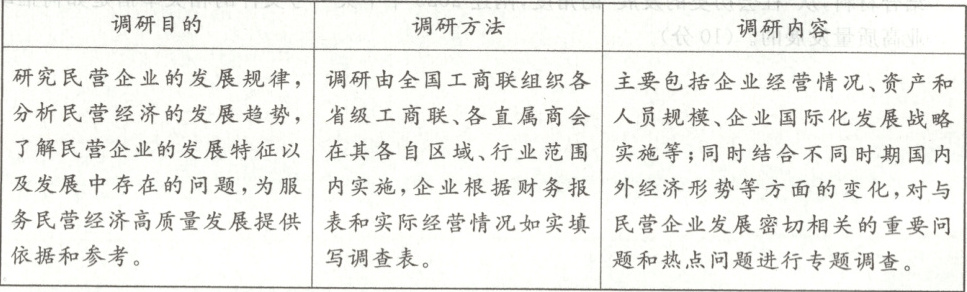 业高质量发展的。(10 分)
调研目的
调研方法
调研内容
研究民营企业的发展规律，
分析民营经济的发展趋势，
了解民营企业的发展特征以
及发展中存在的问题，为服
务民营经济高质量发展提供
依据和参考。
调研由全国工商联组织各
省级工商联、各直属商会
在其各自区域、行业范围
内实施，企业根据财务报
表和实际经营情况如实填
写调查表。
主要包括企业经营情况、资产和
人员规模、企业国际化发展战略
实施等；同时结合不同时期国内
外经济形势等方面的变化，对与
民营企业发展密切相关的重要问
题和热点问题进行专题调查。